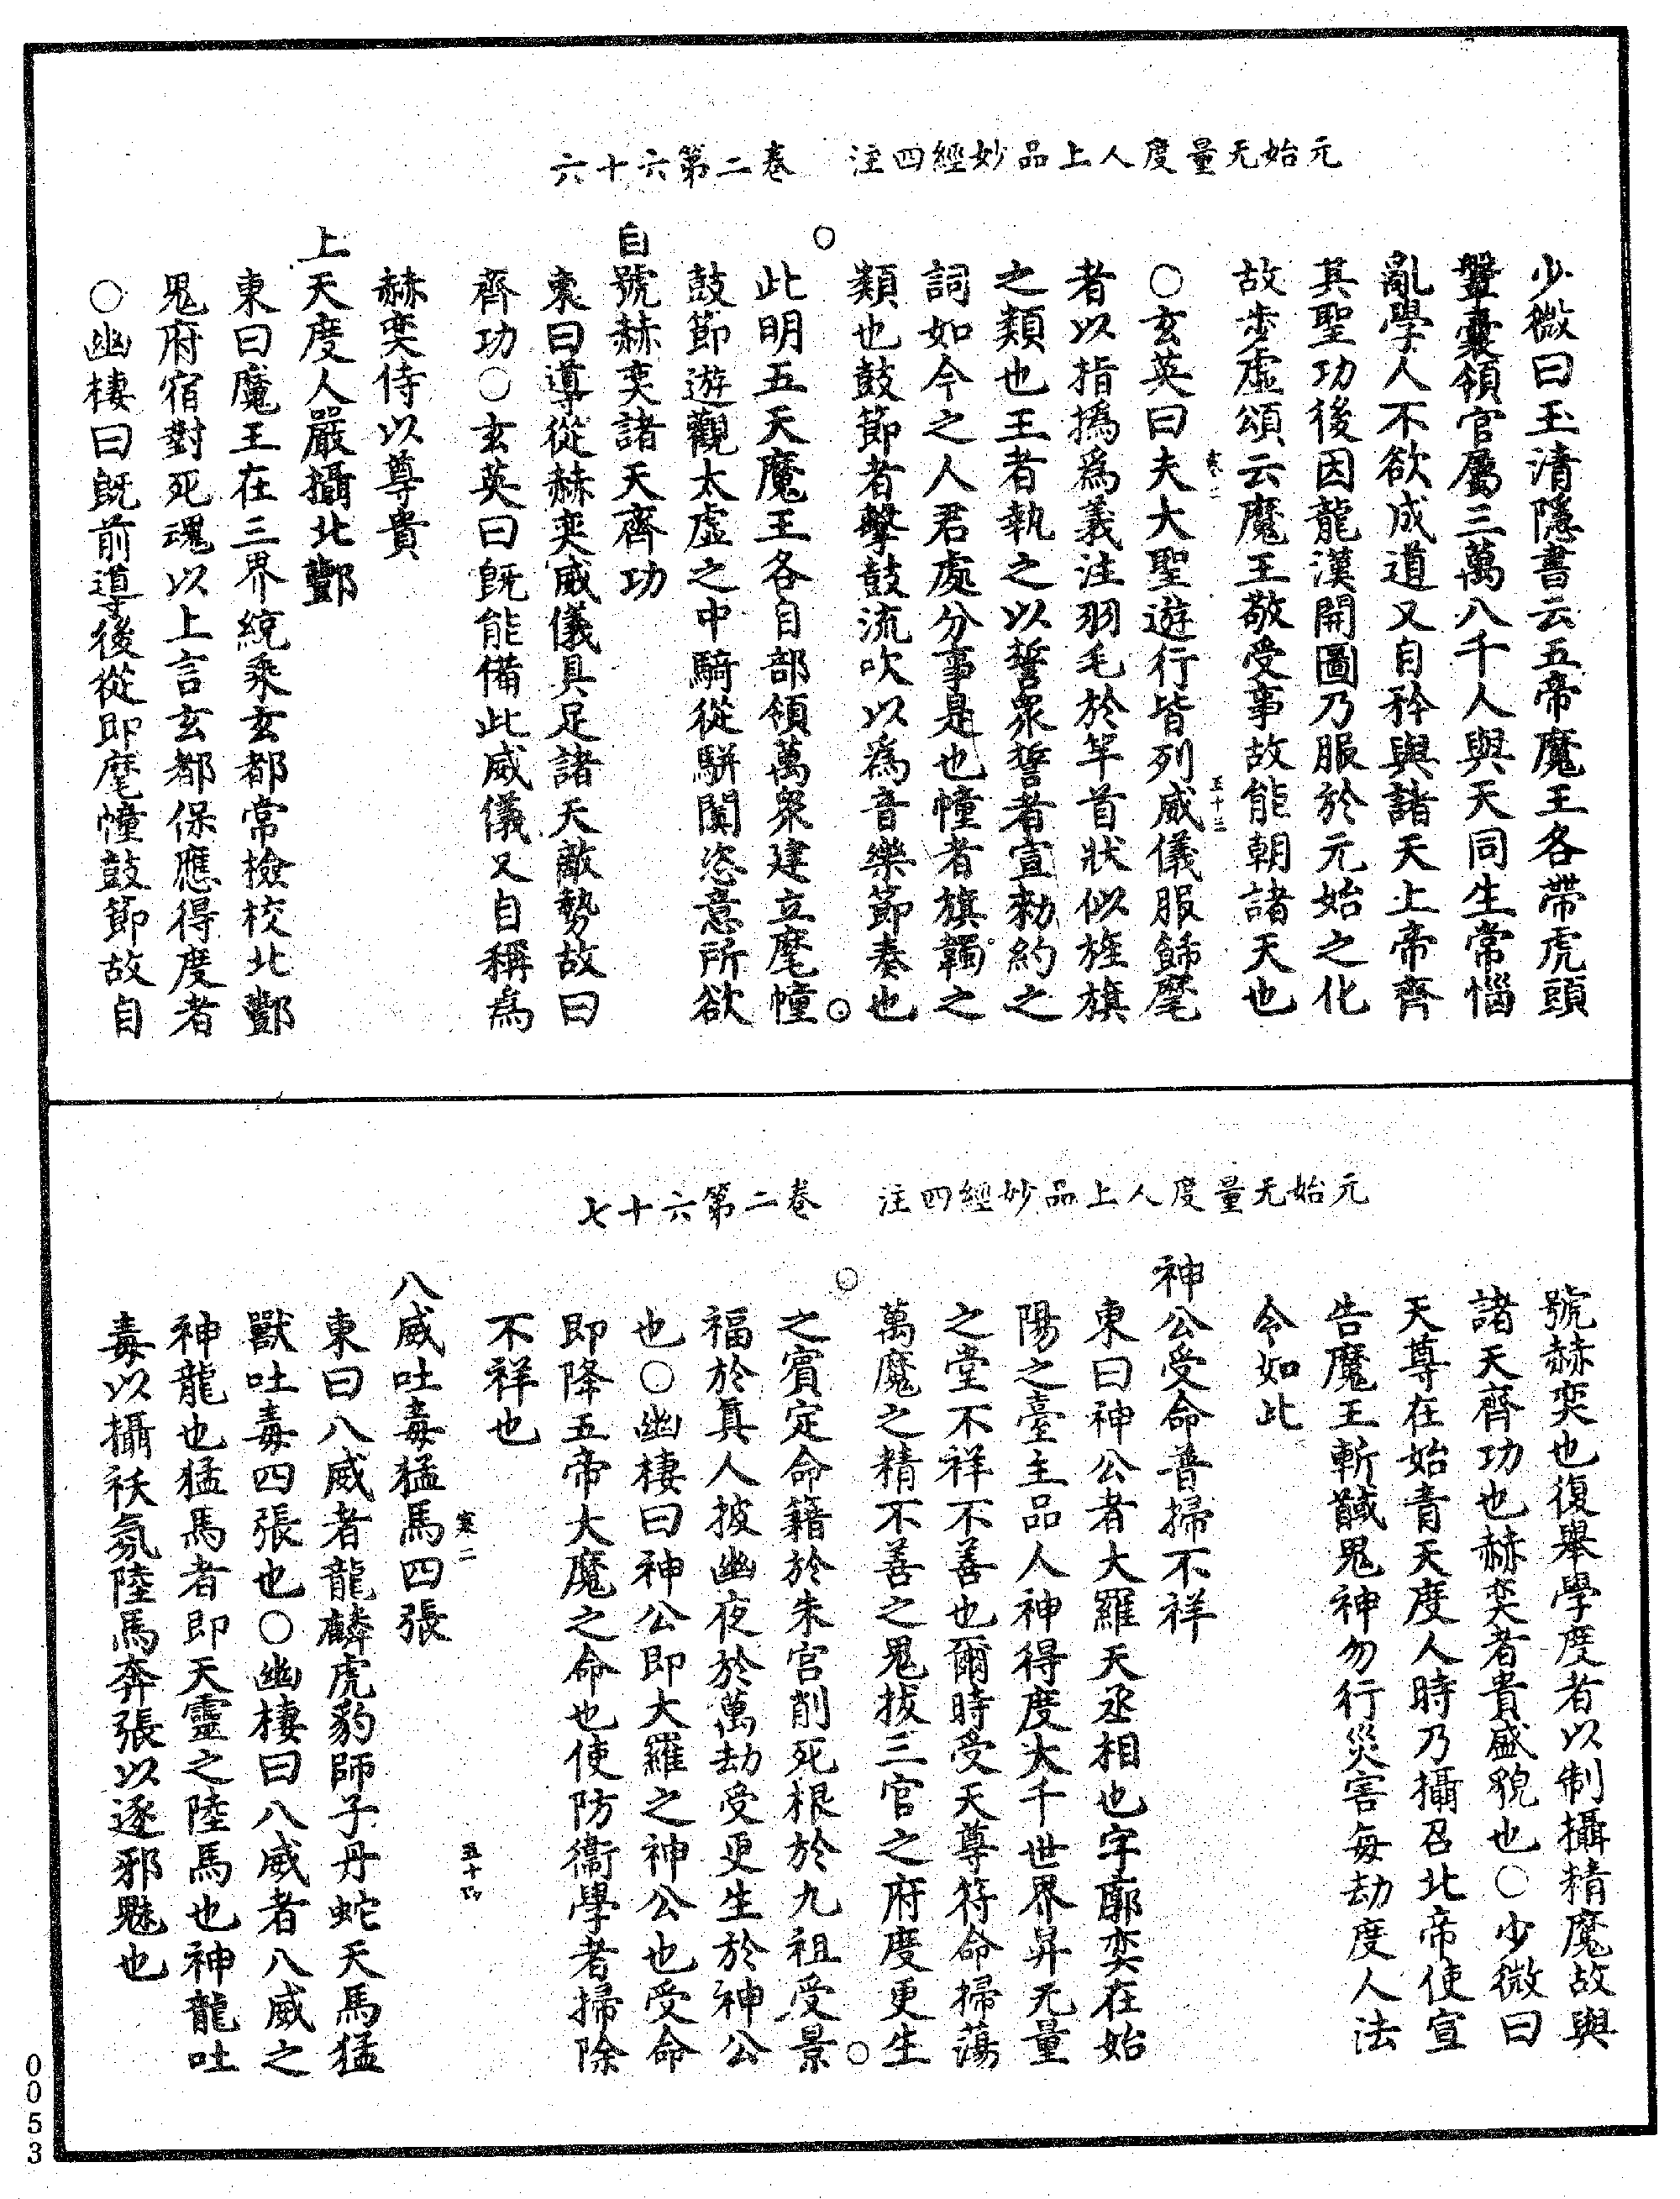 元始无量度人上品妙經四注　卷二第六十六
少微曰玉清隱書云五帝魔王各帶虎頭
鞶囊領官屬三萬八千人與天同生常惱
亂學人不欲成道又自矜與諸天上帝齊
其聖功後因龍漢開圖乃服於元始之化
故步虛頌云魔王敬受事故能朝諸天也
寒二　五十三
○玄英曰夫大聖遊行皆列威儀服飾麾
者以指撝爲義注羽毛於竿首狀似旌旗
之類也王者執之以誓衆誓者宣勑約之
詞如今之人君處分事是也幢者旗纛之
類也鼓節者擊鼓流吹以爲音樂節奏也
此明五天魔王各自部領萬衆建立麾幢
鼓節遊觀太虛之中騎從駢闐恣意所欲
自號赫奕諸天齊功
東曰導從赫奕威儀具足諸天敵勢故曰
齊功○玄英曰旣能備此威儀又自稱爲
赫奕侍以尊貴
上天度人嚴攝北酆
東曰魔王在三界統乘玄都常檢校北酆
鬼府宿對死魂以上言玄都保應得度者
○幽棲曰旣前導後從即麾幢鼓節故自
元始无量度人上品妙經四注　卷二第六十七
號赫奕也復舉學度者以制攝精魔故與
諸天齊功也赫奕者貴盛貌也○少微曰
天尊在始青天度人時乃攝召北帝使宣
告魔王斬馘鬼神勿行災害每劫度人法
令如此
神公受命普掃不祥
東曰神公者大羅天丞相也字廓奕在始
陽之臺主品人神得度大千世界昇无量
之堂不祥不善也爾時受天尊符命掃蕩
萬魔之精不善之鬼拔三官之府度更生
之賓定命籍於朱宮削死根於九祖受景
福於眞人披幽夜於萬劫受更生於神公
也○幽棲曰神公即大羅之神公也受命
即降五帝大魔之命也使防衞學者掃除
不祥也
寒二　五十四
八威吐毒猛馬四張
東曰八威者龍麟虎豹師子丹蛇天馬猛
獸吐毒四張也○幽棲曰八威者八威之
神龍也猛馬者即天靈之陸馬也神龍吐
毒以攝祅氛陸馬奔張以逐邪魅也
0053